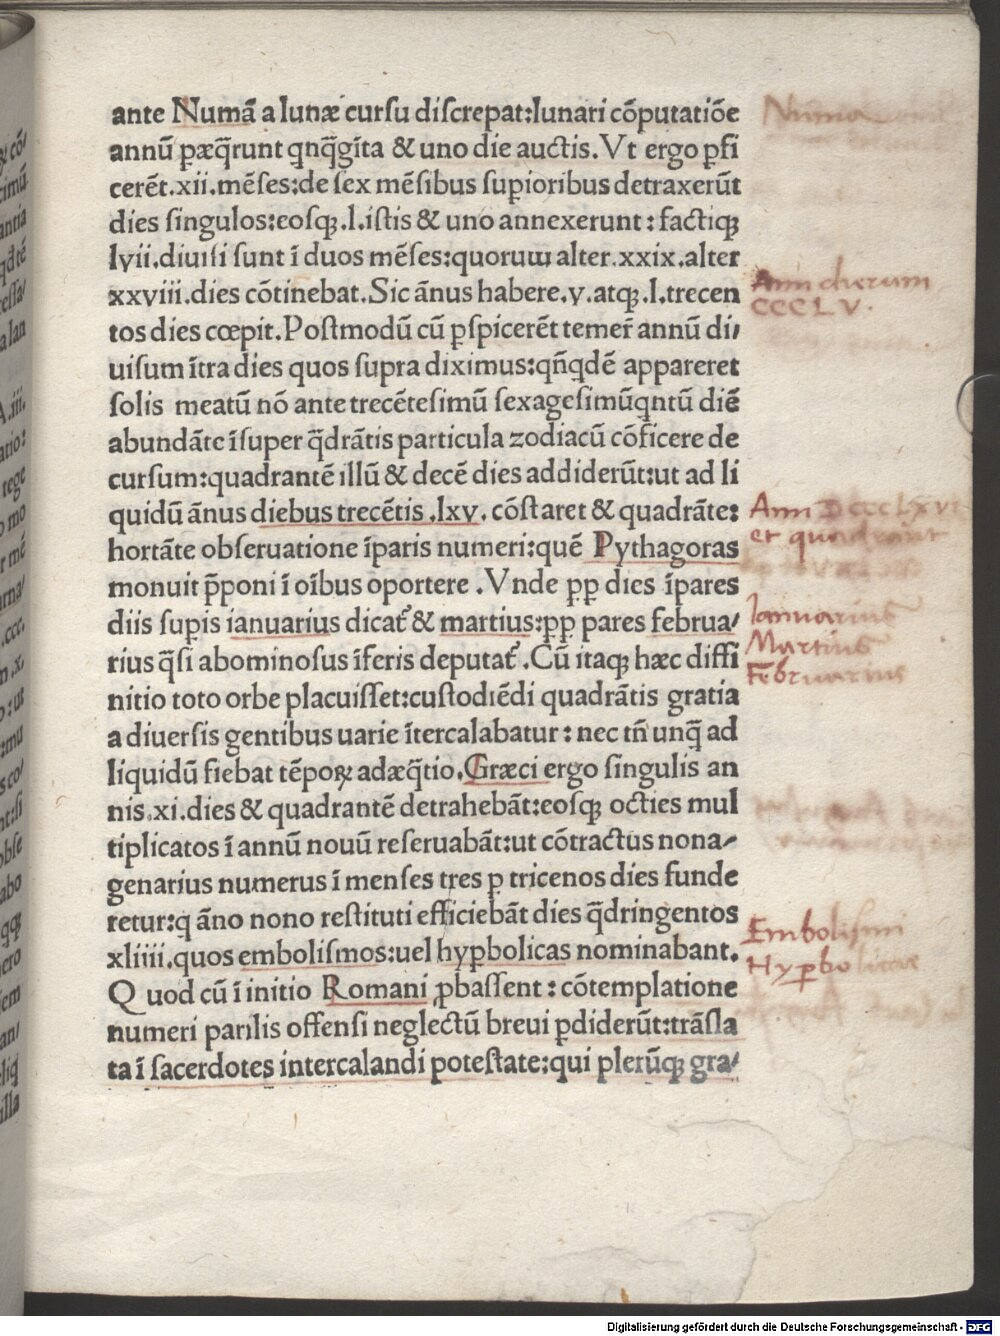 ante Numā a lunæ curſu diſcrepat:lunari cōputatiōe
annū pæq̄runt qnq̄gīta & uno die auctis.Vt ergo ꝑfi
cerēt.xii.mēſes:de ſex mēſibus ſupioribus detraxerūt
dies ſingulos:eoſqꝫ.l.iſtis & uno annexerunt : factiqꝫ
lvii.diuiſi ſunt ī duos mēſes:quorum alter.xxix.alter
xxviii.dies cōtinebat.Sic ānus habere.v.atqꝫ.l.trecen
tos dies cœpit.Poſtmodū cū ꝑſpicerēt temer̄ annū di/
uiſum ītra dies quos ſupra diximus:qn̄qdē appareret
ſolis meatū nō ante trecēteſimū ſexageſimūqntū diē
abundāte īſuper q̄drātis particula zodiacū cōficere de
curſum:quadrantē illū & decē dies addiderūt:ut ad li
quidū ānus diebus trecētis .lxv. cōſtaret & quadrāte:
hortāte obſeruatione īparis numeri:quē Pythagoras
monuit p̄poni ī oībus oportere .Vnde pp dies īpares
diis ſupis ianuarius dicat̄ & martius:pp pares februa/
rius q̄ſi abominoſus īferis deputat̄ .Cū itaqꝫ hæc diffi
nitio toto orbe placuiſſet:cuſtodiēdi quadrātis gratia
a diuerſis gentibus uarie ītercalabatur : nec tn̄ unq̄ ad
liquidū fiebat tēpoꝝ adæq̄tio.Græci ergo ſingulis an
nis.xi.dies & quadrantē detrahebāt:eoſqꝫ octies mul
tiplicatos ī annū nouū reſeruabāt:ut cōtractus nona/
genarius numerus ī menſes tres ꝑ tricenos dies funde
retur:q āno nono reſtituti efficiebāt dies q̄dringentos
xliiii.quos emboliſmos:uel hyꝑbolicas nominabant.
Q uod cū ī initio Romani ꝓbaſſent : cōtemplatione
numeri parilis offenſi neglectū breui ꝑdiderūt:trāſla
ta ī ſacerdotes intercalandi poteſtate:qui plerūqꝫ gra/
Numa
Anni dierum
CCCLV.
Anni
et quadrant
Ianuarius
Martius
Februarius
Emboliſmi
Hyꝑbolicae
Digitalisierung gefördert durch die Deutsche Forschungsgemeinschaft - DFG